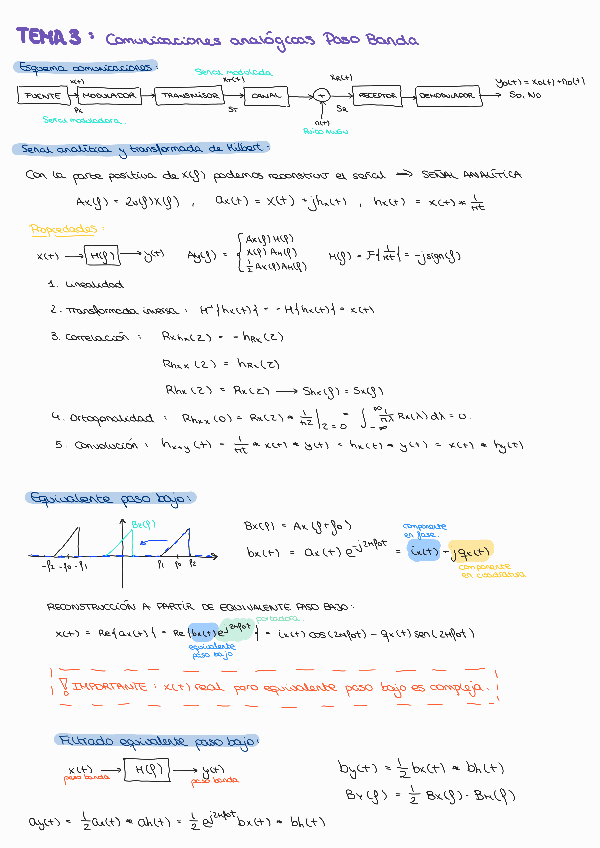 TEMA 3: Comunicaciones analógicas Paso Banda
Esquema comunicaciones:
Señal modulada
x(t) xT(t) xR(t) yD(t) = xD(t) + nD(t)
FUENTE MODULADOR TRANSMISOR CANAL + RECEPTOR DEMODULADOR SD, ND
Px ST SR
Señal moduladora. n(t)
Ruido AWGN
Señal analítica y transformada de Hilbert:
Con la parte positiva de X(f) podemos reconstruir el señal → SEÑAL ANALÍTICA
Ax(f) = 2u(f)X(f) , ax(t) = x(t) + jhx(t) , hx(t) = x(t) * 1/πt
Propiedades:
x(t) → H(f) → y(t) Ay(f) = { Ax(f) H(f) H(f) = F{1/πt} = -jsign(f)
X(f) AH(f)
1/2 Ax(f) AH(f)
1. Linealidad
2. Transformada inversa : H⁻¹{hx(t)} = -H{hx(t)} = x(t)
3. Correlación : Rxhx(τ) = -hRx(τ)
Rhxx(τ) = hRx(τ)
Rhx(τ) = Rx(τ) → Shx(f) = Sx(f)
4. Ortogonalidad : Rhxx(0) = Rx(τ) * 1/πτ |τ=0 = ∫-∞^∞ 1/πλ Rx(λ) dλ = 0.
5. Convolución : hx*y(t) = 1/πt * x(t) * y(t) = hx(t) * y(t) = x(t) * hy(t)
Equivalente paso bajo:
Bx(f) Bx(f) = Ax(f+f0) componente en fase.
bx(t) = ax(t) e^-j2πf0t = ix(t) + jqx(t)
-f2 -f0 -f1 f1 f0 f2 componente en cuadratura
RECONSTRUCCIÓN A PARTIR DE EQUIVALENTE PASO BAJO:
portadora.
x(t) = Re{ax(t)} = Re{bx(t)e^j2πf0t} = ix(t) cos(2πf0t) - qx(t) sen(2πf0t)
equivalente
paso bajo
! IMPORTANTE : x(t) real pero equivalente paso bajo es compleja.
Filtrado equivalente paso bajo:
x(t) → H(f) → y(t) by(t) = 1/2 bx(t) * bh(t)
paso banda paso banda
BY(f) = 1/2 Bx(f) · BH(f)
ay(t) = 1/2 ax(t) * ah(t) = 1/2 e^j2πf0t bx(t) * bh(t)